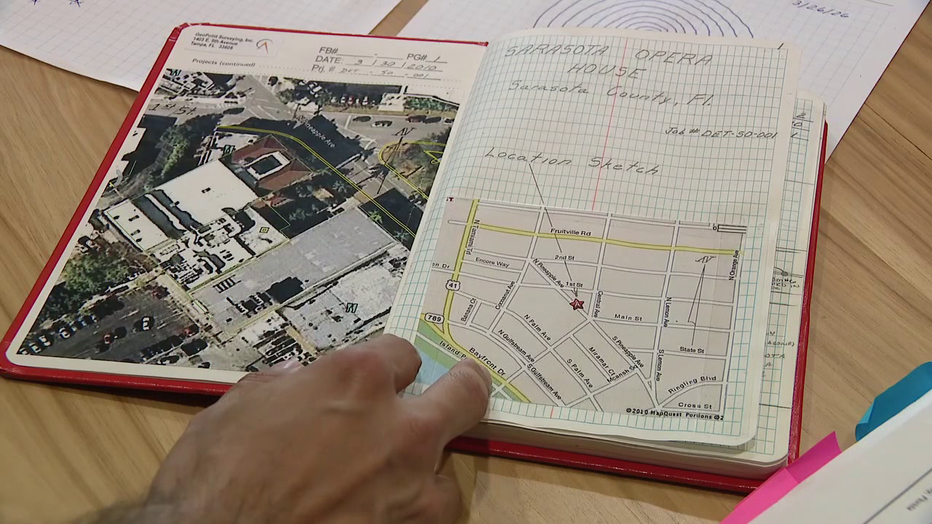 GeoPoint Surveying, Inc.
1403 E. 5th Avenue
Tampa, FL 33605
Projects (continued)
FB#
PG# 1
DATE: 3 / 30 / 2010
Prj. # DET - SO - 001
1st St
N Pineapple Ave
N
1
SARASOTA OPERA
HOUSE
Sarasota County, Fl.
Job # DET-SO-001
Location Sketch
N Tamiami Trl
Fruitville Rd
2nd St
Encore Way
N Pineapple Ave
1st St
N
N Orange Ave
on Dr
41
Cocoanut Ave
Central Ave
N Lemon Ave
Main St
789
N Palm Ave
N Gulfstream Ave
Bayfront Dr
Island P
S Gulfstream Ave
S Palm Ave
Miramar Ct
S Pineapple Ave
S Lemon Ave
State St
Ringling Blvd
Cross St
©2010 MapQuest Portions ©2
3/26/06